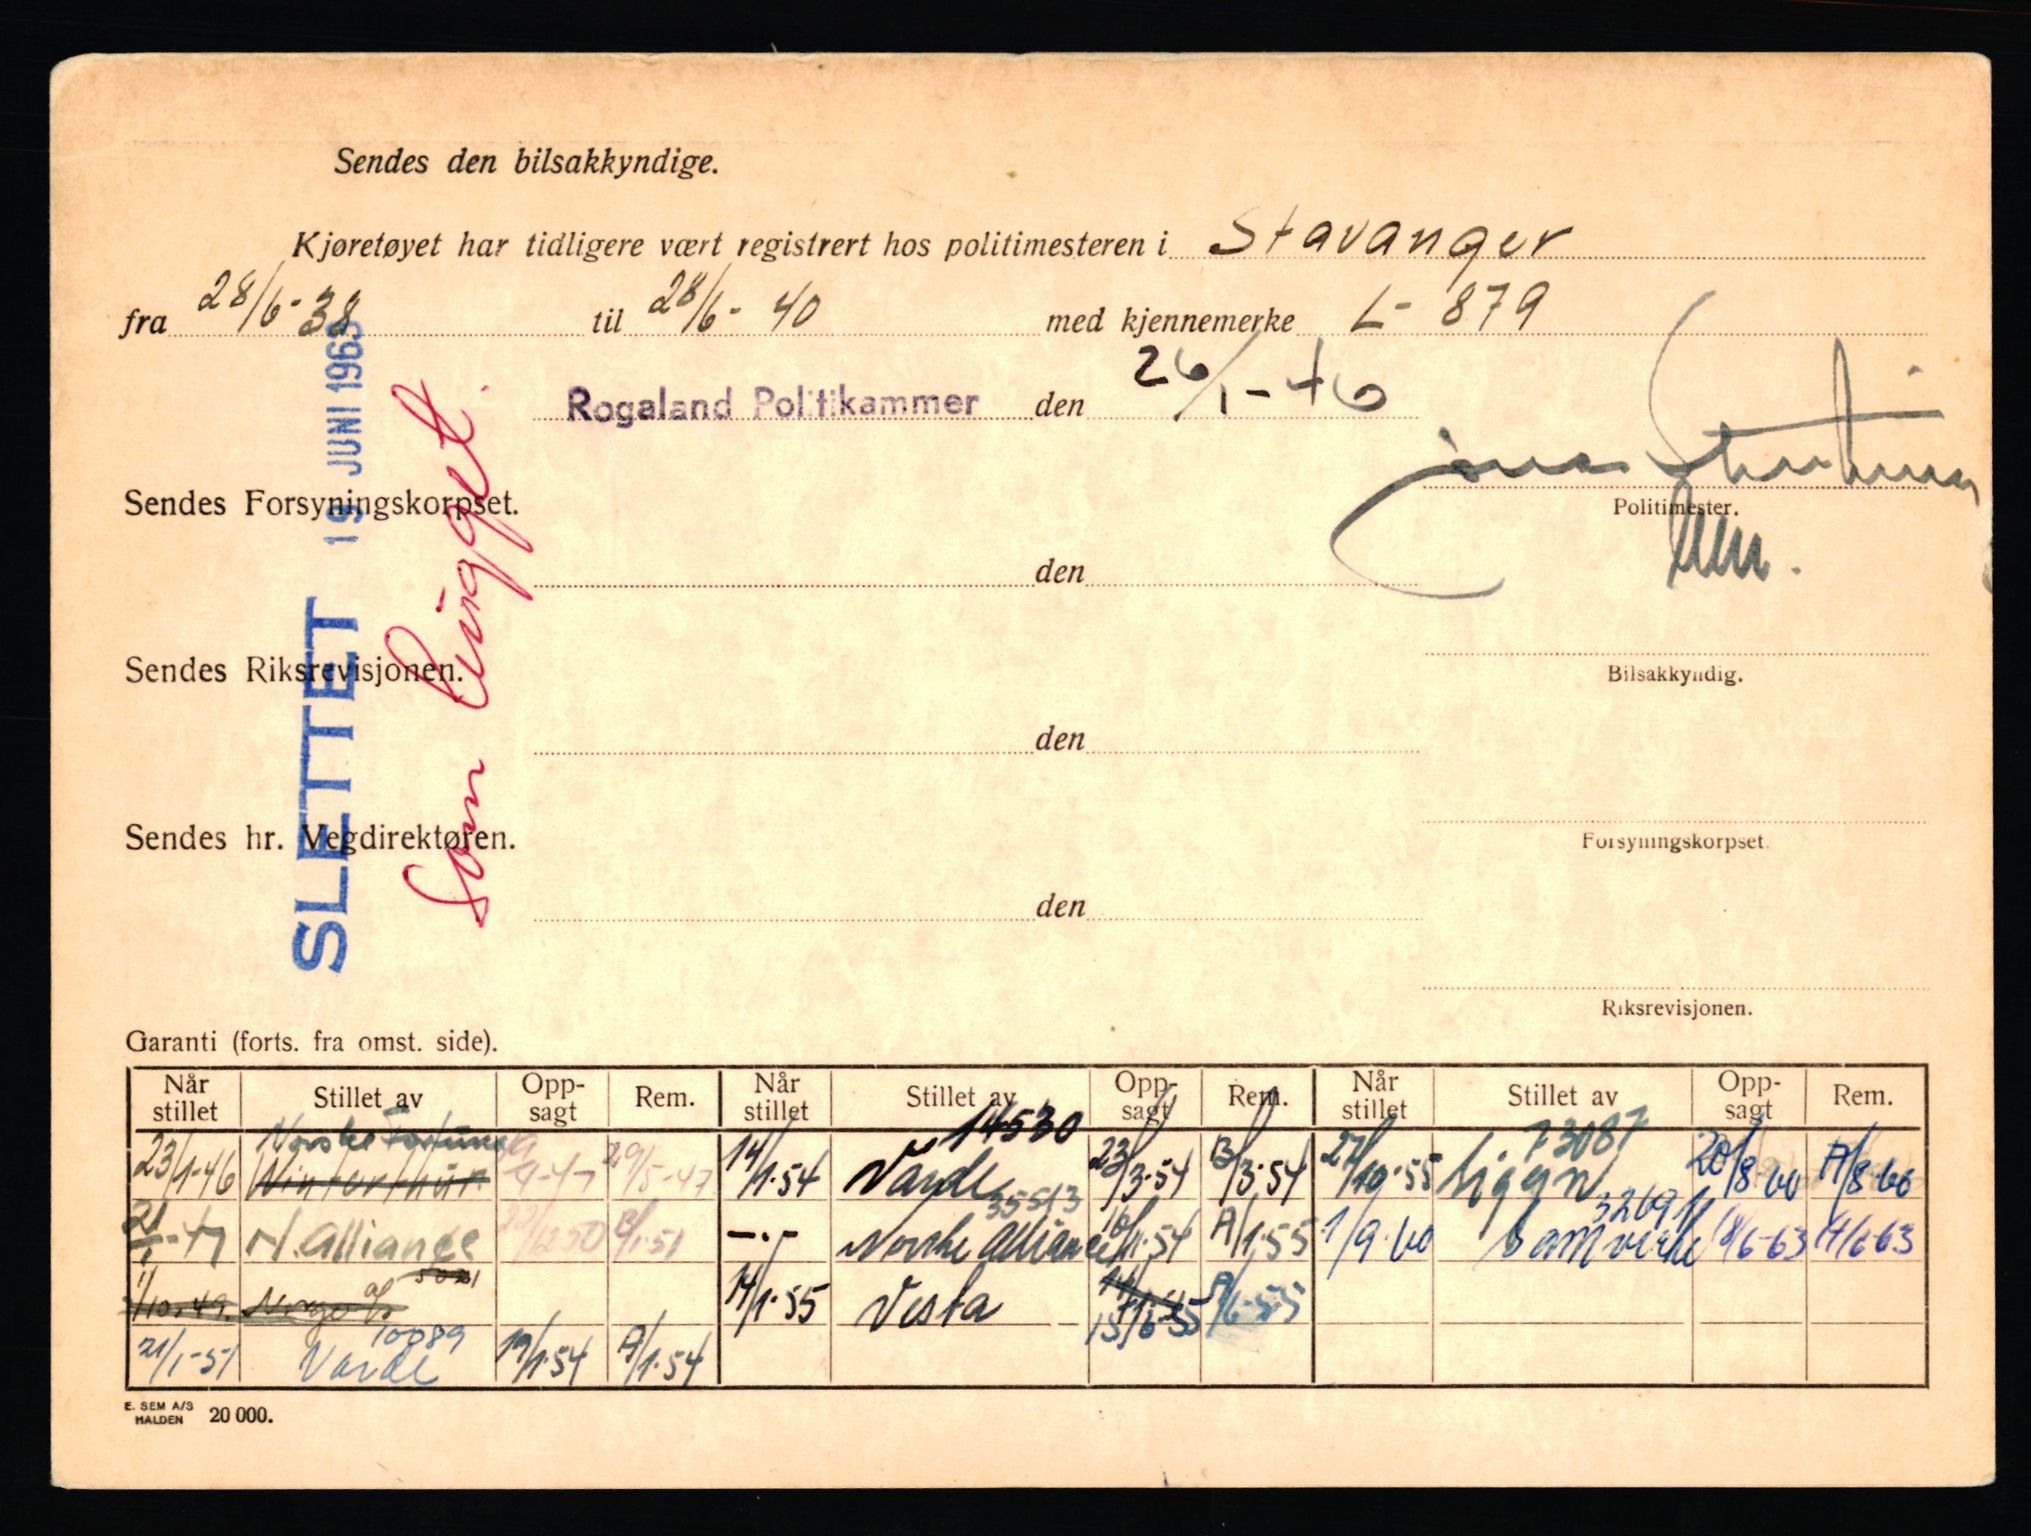 Sendes den bilsakkyndige.
Kjøretøyet har tidligere vært registrert hos politimesteren i Stavanger
fra 28/6-38 til 28/6-40 med kjennemerke L-879
Rogaland Politikammer den 26/1-46
Politimester.
Sendes Forsyningskorpset.
den
Bilsakkyndig.
Sendes Riksrevisjonen.
den
Forsyningskorpset.
Sendes hr. Vegdirektøren.
den
Riksrevisjonen.
SLETTET 19 JUNI 1963
Som hugget.
Garanti (forts. fra omst. side).
Når stillet Stillet av Opp-sagt Rem. Når stillet Stillet av Opp-sagt Rem. Når stillet Stillet av Opp-sagt Rem.
Norske Fortuna 14530 73087
23/1-46 Winterthur 29/5-47 14/1.54 Varde 23/3.54 B/3.54 27/10-55 Sigyn 20/8-60 A/8-60
35513 32691
21/1-47 N. Alliance B/1.51 -.- Norske Alliance 18/1.54 A/1.55 1/9.60 Samvirke 18/6-63 A/6-63
1/10.49 Norge a/s 14/1.55 Vesta 15/6-55 A/6-55
10089
21/1-51 Varde 19/1.54 A/1.54
E. SEM A/S
HALDEN 20 000.